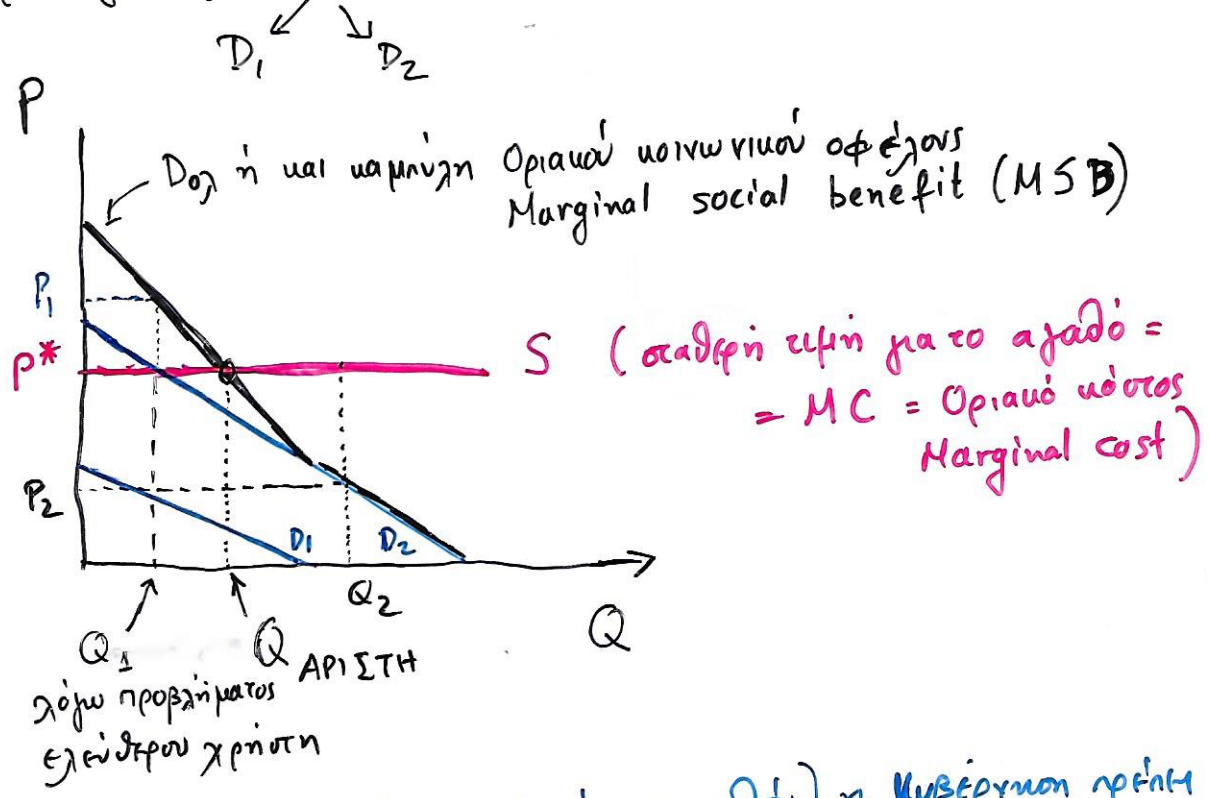 D₁ D₂
P
Dολ ή και καμπύλη Οριακού κοινωνικού οφέλους
Marginal social benefit (MSB)
P₁
P*
S (σταθερή τιμή για το αγαθό =
= MC = Οριακό κόστος
Marginal cost)
P₂
D₁ D₂
Q₂
Q
Q₁ Q ΑΡΙΣΤΗ
λόγω προβλήματος
ελεύθερου χρήστη
η Κυβέρνηση πρέπει